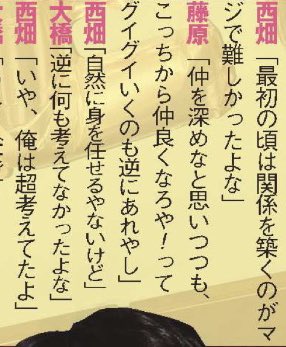 西畑「最初の頃は関係を築くのがマ
ジで難しかったよな」
藤原「仲を深めなと思いつつも、
こっちから仲良くなろや!って
グイグイいくのも逆にあれやし」
西畑「自然に身を任せるやないけど」
大橋「逆に何も考えてなかったよな」
西畑「いや、俺は超考えてたよ」